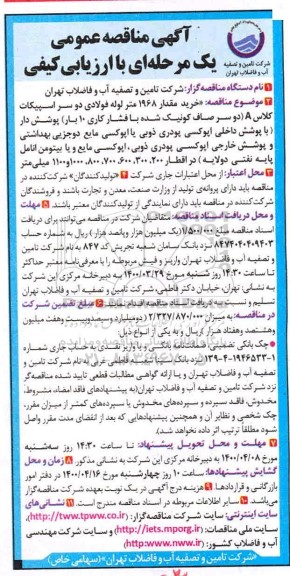 آگهی مناقصه عمومی
یک مرحله‌ای با ارزیابی کیفی
شرکت تامین و تصفیه
آب و فاضلاب تهران
۱ نام دستگاه مناقصه‌گزار: شرکت تامین و تصفیه آب و فاضلاب تهران
۲ موضوع مناقصه: «خرید مقدار ۱۹۶۸ متر لوله فولادی دو سر اسپیگات
کلاس A (دو سر صاف کونیک شده با فشار کاری ۱۰ بار) پوشش دار
(با پوشش داخلی اپوکسی پودری ذوبی یا اپوکسی مایع دوجزیی بهداشتی
و پوشش خارجی اپوکسی پودری ذوبی، اپوکسی مایع و یا بیتومن انامل
پایه نفتی دولایه) در اقطار ۲۰۰، ۳۰۰، ۶۰۰، ۷۰۰، ۸۰۰، ۱۰۰۰و۱۱۰۰ میلی‌متر
۳ محل اعتبار: از محل اعتبارات جاری شرکت ۴ «تولیدکنندگان» شرکت‌کننده در
مناقصه باید دارای پروانه‌ی تولید از وزارت صنعت، معدن و تجارت باشند و فروشندگان
شرکت‌کننده در مناقصه باید دارای نمایندگی از تولیدکنندگان معتبر باشند ۵ مهلت
و محل دریافت اسناد مناقصه: متقاضیان شرکت در مناقصه می‌توانند برای دریافت
اسناد مناقصه مبلغ ۱/۵۰۰/۰۰۰ (یک میلیون هزار وپانصد هزار) ریال به شماره حساب
۸۴۷۴۰۴۰۴۰۹۴۰۳ نزد بانک سامان شعبه تجریش کد ۸۴۷ به نام شرکت تامین
و تصفیه آب و فاضلاب تهران واریز و فیش مربوطه را با معرفی‌نامه معتبر حداکثر
تا ساعت ۱۴:۳۰ روز شنبه مورخ ۱۴۰۰/۰۳/۲۹ به دبیرخانه مرکزی این شرکت
به نشانی: تهران، خیابان دکتر فاطمی، شرکت تامین و تصفیه آب و فاضلاب تهران
تسلیم و نسبت به دریافت اسناد مناقصه اقدام نمایند. ۶ مبلغ تضمین شرکت
در مناقصه: به میزان ۲/۳۲۷/۸۷۰/۰۰۰ (دومیلیارد وسیصدوبیست وهفت میلیون
وهشتصد وهفتاد هزار) ریال و به یکی از انواع ذیل:
آب و فاضلاب تهران واریز و یا ارائه گواهی مطالبات قطعی تایید شده مناقصه‌گر
نزد شرکت تامین و تصفیه آب و فاضلاب تهران (به پیشنهادهای فاقد امضاء، مشروط،
مخدوش، فاقد سپرده و سپرده‌های مخدوش یا سپرده‌های کمتر از میزان مقرر،
چک شخصی و نظایر آن و همچنین پیشنهادهایی که بعد از انقضای مدت مقرر واصل
شود مطلقاً ترتیب اثر داده نخواهد شد.)
۷ مهلت و محل تحویل پیشنهاد: تا ساعت ۱۴:۳۰ روز سه‌شنبه
مورخ ۱۴۰۰/۰۴/۰۸ به دبیرخانه مرکزی این شرکت به نشانی مذکور. ۸ زمان و محل
گشایش پیشنهادها: ساعت ۱۰ روز چهارشنبه مورخ ۱۴۰۰/۰۴/۱۶ در دفتر امور
بازرگانی و قراردادها. ۹ هزینه درج آگهی در یک نوبت بعهده شرکت مناقصه‌گزار
می‌باشد. ۱۰ سایر اطلاعات مربوطه در اسناد مناقصه مندرج است. ۱۱ نشانی‌های
سایت اینترنتی: سایت شرکت مناقصه‌گزار: (http://tww.tpww.co.ir)،
سایت ملی مناقصات: (http://iets.mporg.ir) و سایت شرکت مهندسی
آب و فاضلاب کشور: (http:www.nww.ir)
«شرکت تامین و تصفیه آب و فاضلاب تهران» (سهامی خاص)